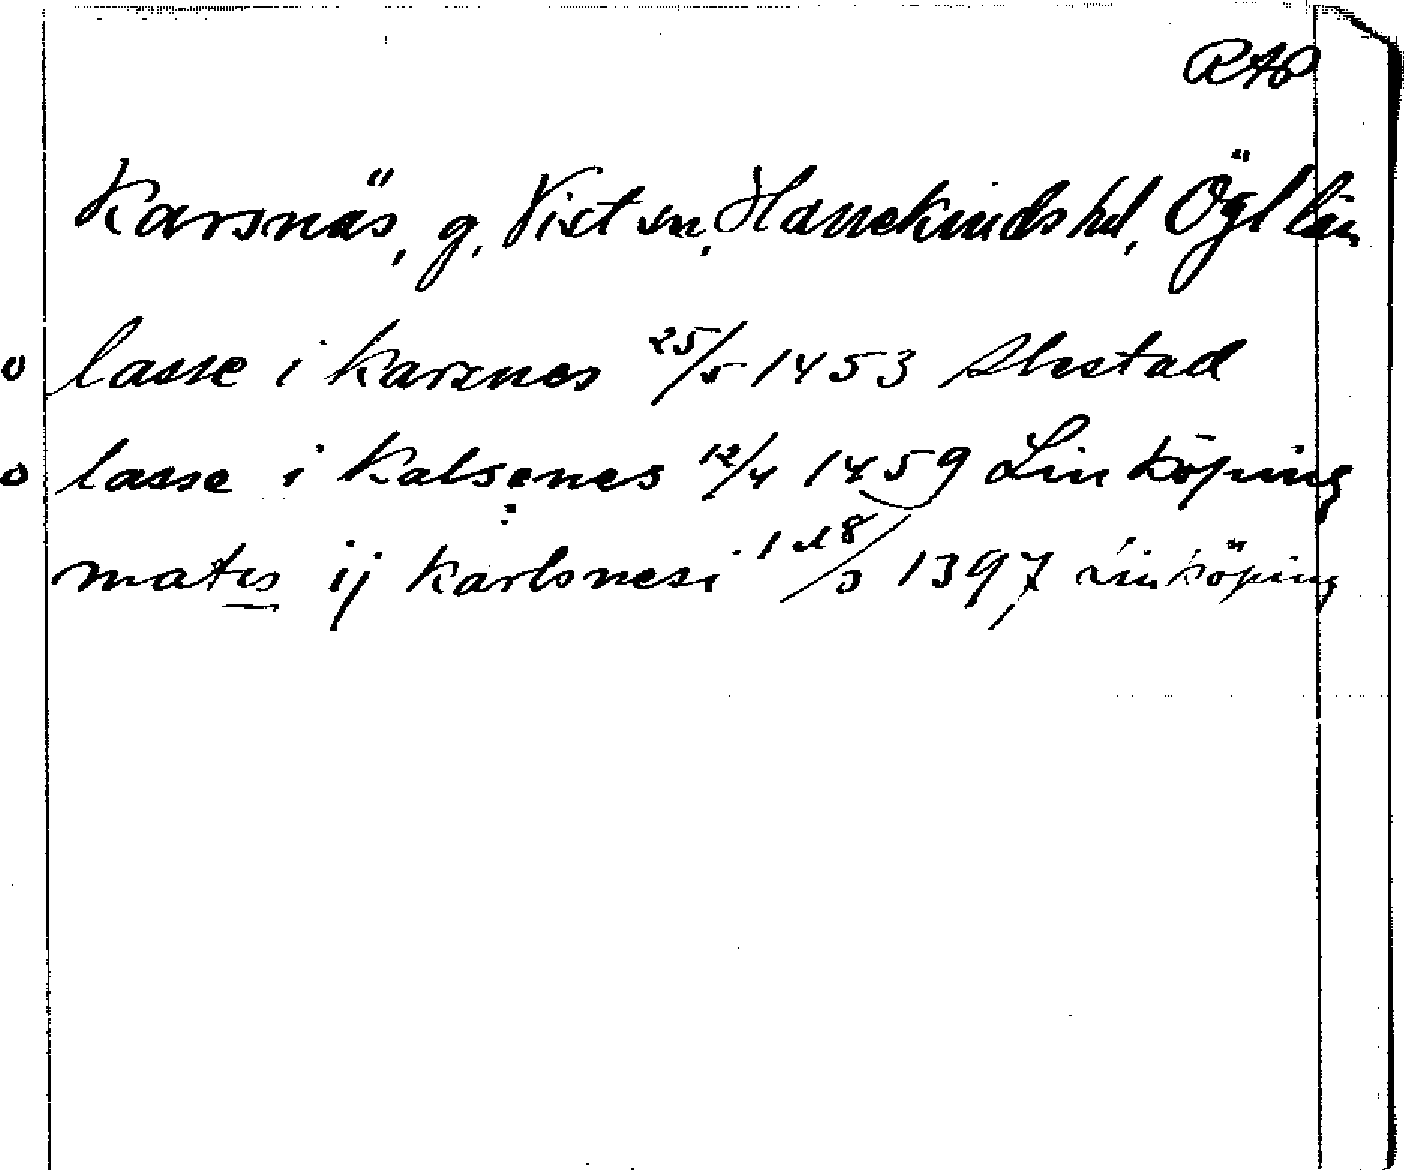 RAP
Karsnäs, g, Vist sn, Hanekinds hd, Ögl län
o lasse i karsnes 25/5 1453 Slestad
o lasse i kalsenes 12/4 1459 Linköping
matis ij karlsnesi 18/3 1397 Linköping